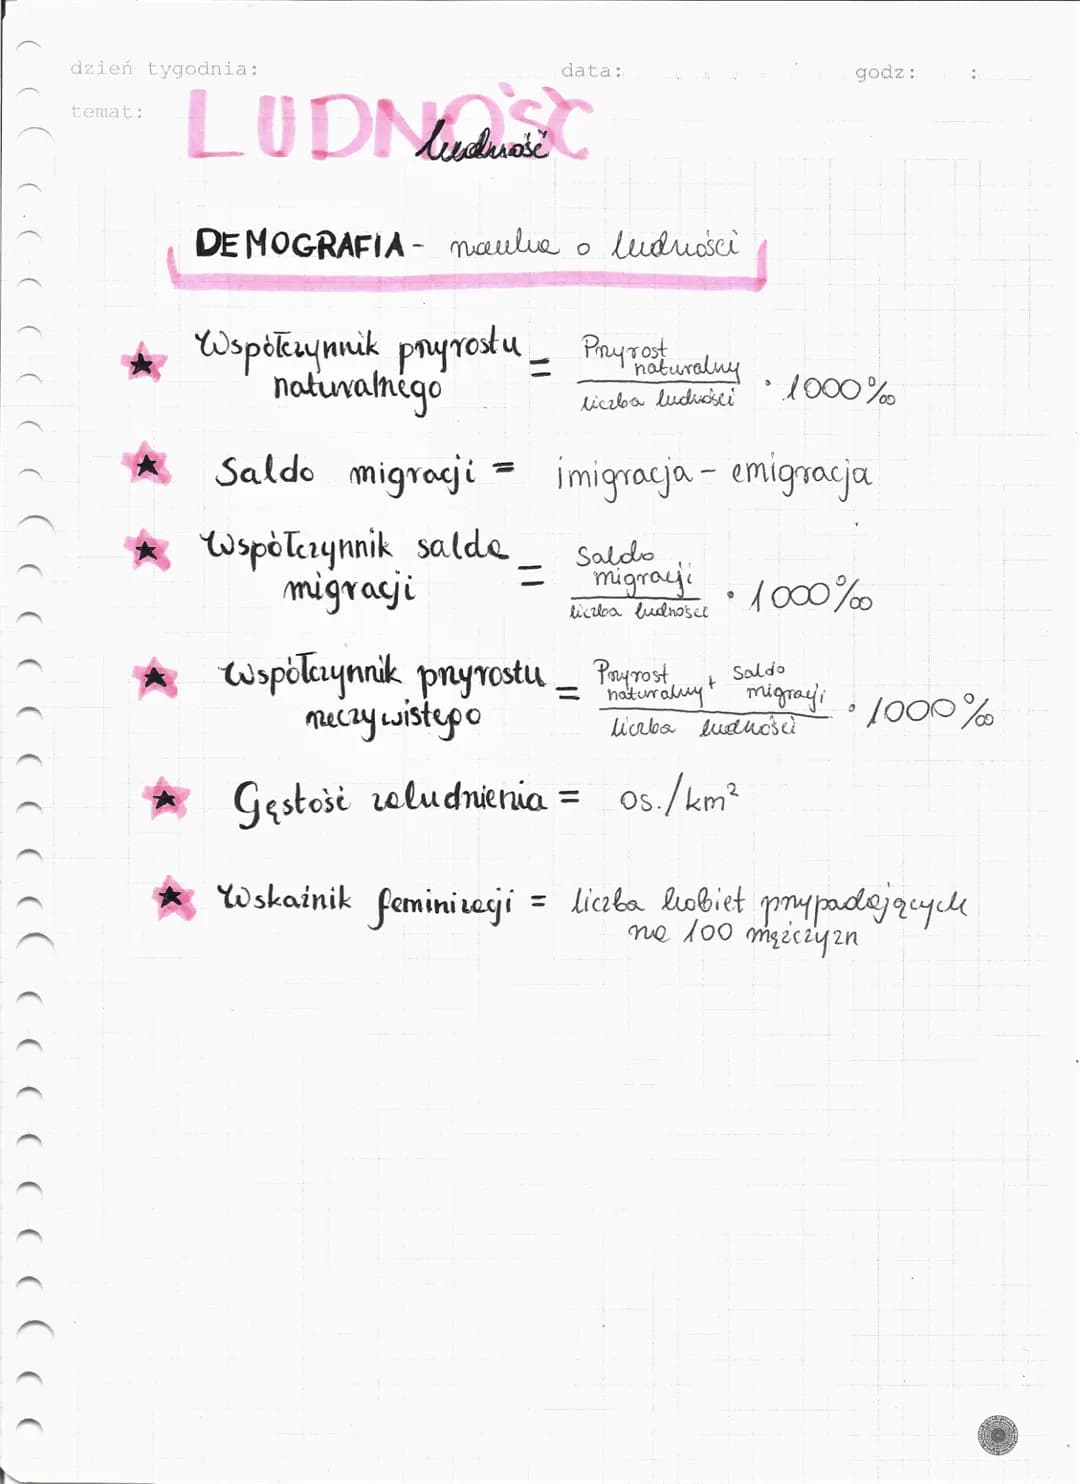 dzień tygodnia: data: godz: :
temat: LUDNOŚĆ
ludność
DEMOGRAFIA - nauka o ludności
Współczynnik przyrostu naturalnego = Przyrost naturalny / liczba ludności · 1000‰
Saldo migracji = imigracja - emigracja
Współczynnik salda migracji = Saldo migracji / liczba ludności · 1000‰
Współczynnik przyrostu rzeczywistego = Przyrost naturalny + Saldo migracji / liczba ludności · 1000‰
Gęstość zaludnienia = os./km²
Wskaźnik feminizacji = liczba kobiet przypadających
na 100 mężczyzn